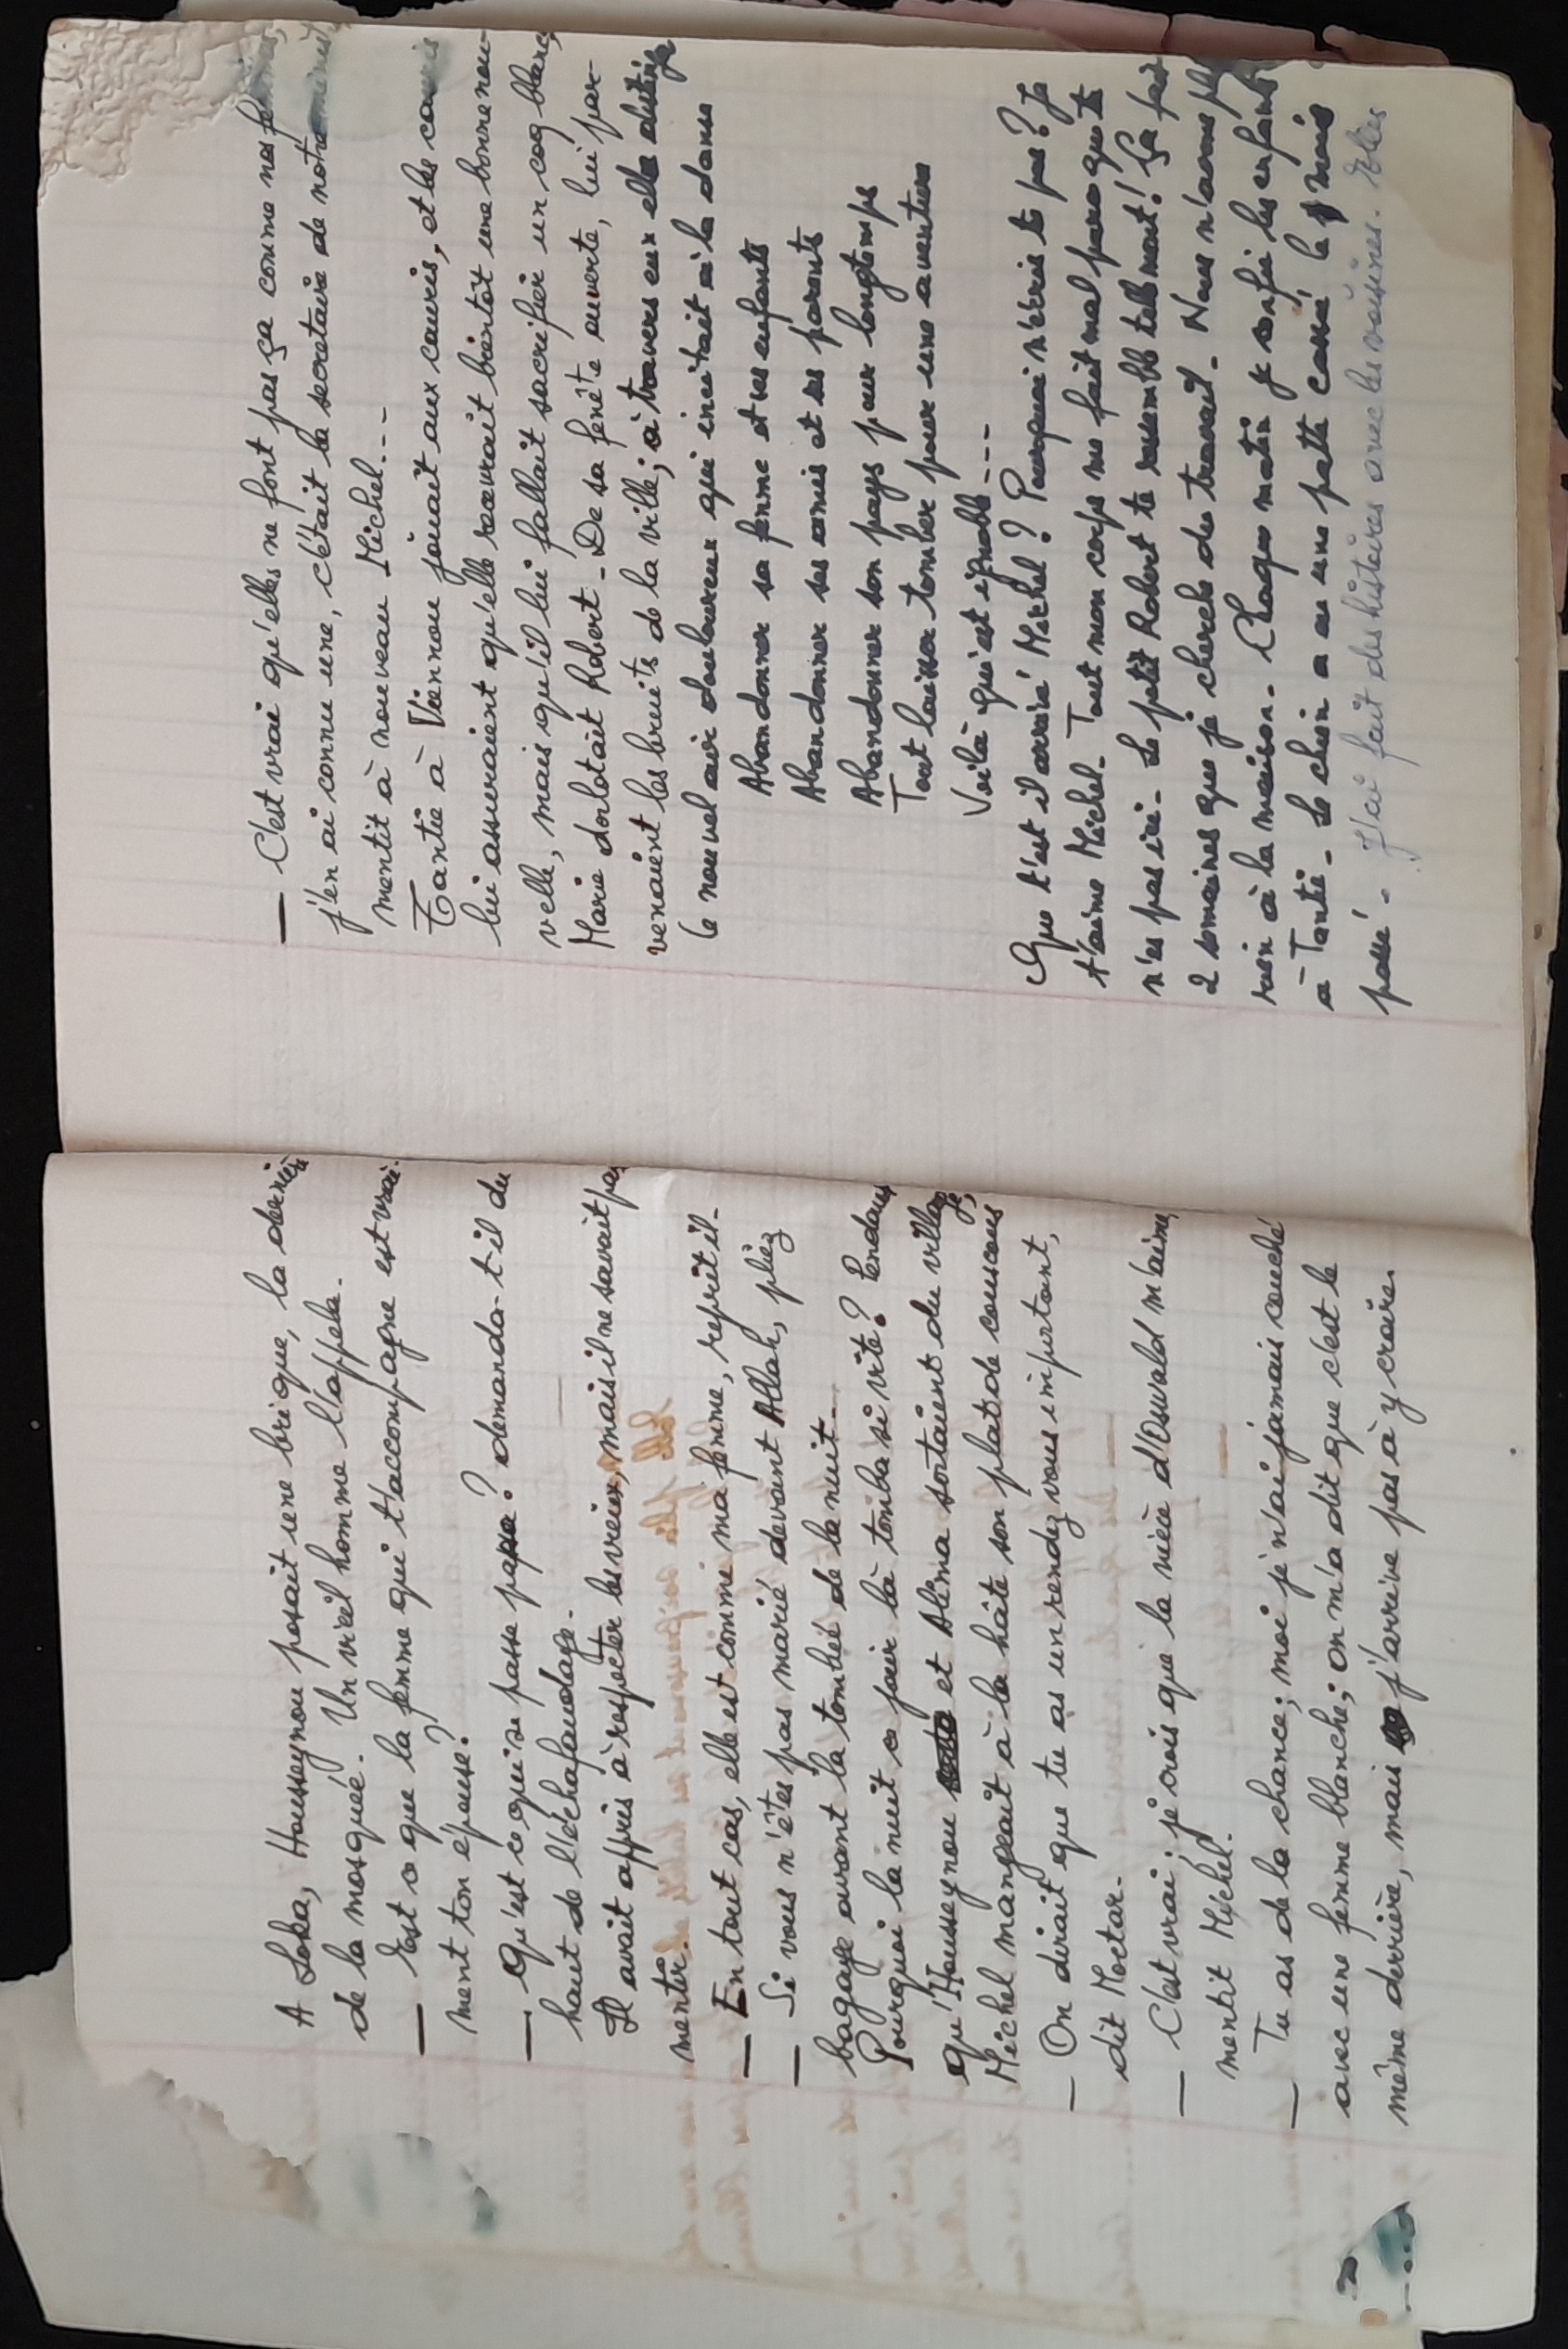 A Loka, Housseynou posait une brique, la dernière
de la mosquée. Un vieil homme l'appela.
— Est ce que la femme qui t'accompagne est vrai-
ment ton épouse?
— Qu'est ce qui se passe papa? demanda-t-il du
haut de l'échafaudage.
Il avait appris à respecter les vieux, mais il ne savait pas
mentir.
— En tout cas, elle est comme ma femme, reprit il-
— Si vous n'êtes pas marié devant Allah, pliez
bagage avant la tombée de la nuit.
Pourquoi la nuit ce jour là tomba si vite? Pendant
qu'Housseynou et Aléma sortaient du village,
Michel mangeait à la hâte son plat de couscous
— On dirait que tu as un rendez vous important,
dit Moctar.
— C'est vrai; je crois que la nièce d'Oswald m'aime,
mentit Michel.
— Tu as de la chance; moi je n'ai jamais couché
avec une femme blanche; on m'a dit que c'est le
même derrière, mais j'arrive pas à y croire.
— C'est vrai qu'elles ne font pas ça comme nos femmes,
j'en ai connu une, c'était la secretaire de notre
mentit à nouveau Michel...
Tantie à Viennou jouait aux cauris, et les cauris
lui assuraient qu'elle recevrait bientôt une bonne nou-
velle, mais qu'il lui fallait sacrifier un coq blanc,
Marie dorlotait Robert - De sa fenête ouverte, lui par-
venaient les bruits de la ville; à travers eux elle
le nouvel air douloureux qui incitait à la danse
Abandonner sa femme et ses enfants
Abandonner ses amis et ses parents
Abandonner son pays pour longtemps
Tout laisser tomber pour une aventure
Voilà qui est ignoble...
Que t'est il arrivé Michel? Pourquoi n'écris tu pas? Je
t'aime Michel- Tout mon corps me fait mal parce que tu
n'es pas ici- Le petit Robert te ressemble tellement! Ça fait
2 semaines que je cherche du travail- Nous n'avons plus
rien à la maison- Chaque matin je confie les enfants
à Tantie- Le chien a eu une patte cassée le mois
passé- J'ai fait des histoires avec les voisines.